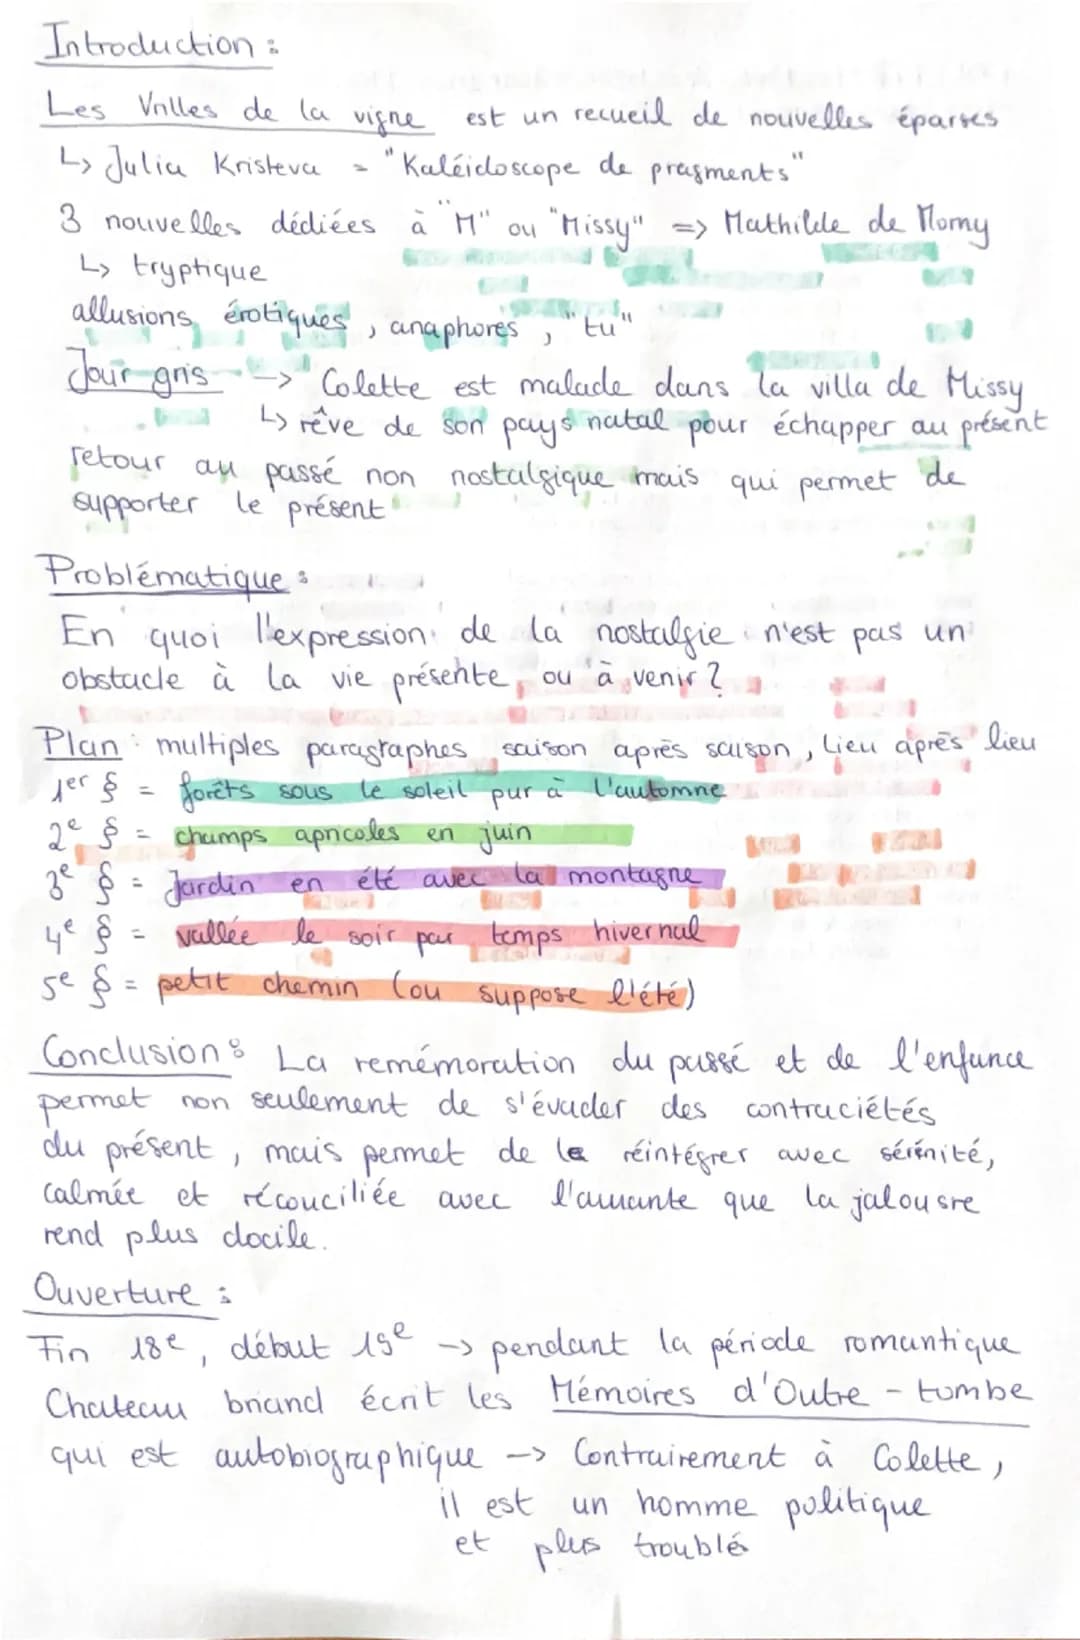 Introduction :
Les Vrilles de la vigne est un recueil de nouvelles éparses
↳ Julia Kristeva = "Kaléidoscope de pragments"
3 nouvelles dédiées à "M" ou "Missy" => Mathilde de Morny
↳ tryptique
allusions érotiques, anaphores, "tu"
Jour gris -> Colette est malade dans la villa de Missy
↳ rêve de son pays natal pour échapper au présent
retour au passé non nostalgique mais qui permet de
supporter le présent
Problématique :
En quoi l'expression de la nostalgie n'est pas un
obstacle à la vie présente ou à venir ?
Plan : multiples paragraphes saison après saison, lieu après lieu
1er § = forêts sous le soleil pur à l'automne
2e § = champs apricoles en juin
3e § = Jardin en été avec la montagne
4e § = vallée le soir par temps hivernal
5e § = petit chemin (ou suppose l'été)
Conclusion : La remémoration du passé et de l'enfance
permet non seulement de s'évader des contraciétés
du présent, mais permet de le réintégrer avec sérénité,
calmée et réconciliée avec l'amante que la jalousre
rend plus docile.
Ouverture :
Fin 18e, début 19e -> pendant la période romantique
Chateau briand écrit les Mémoires d'Outre - tombe
qui est autobiographique -> Contrairement à Colette,
il est un homme politique
et plus troublé